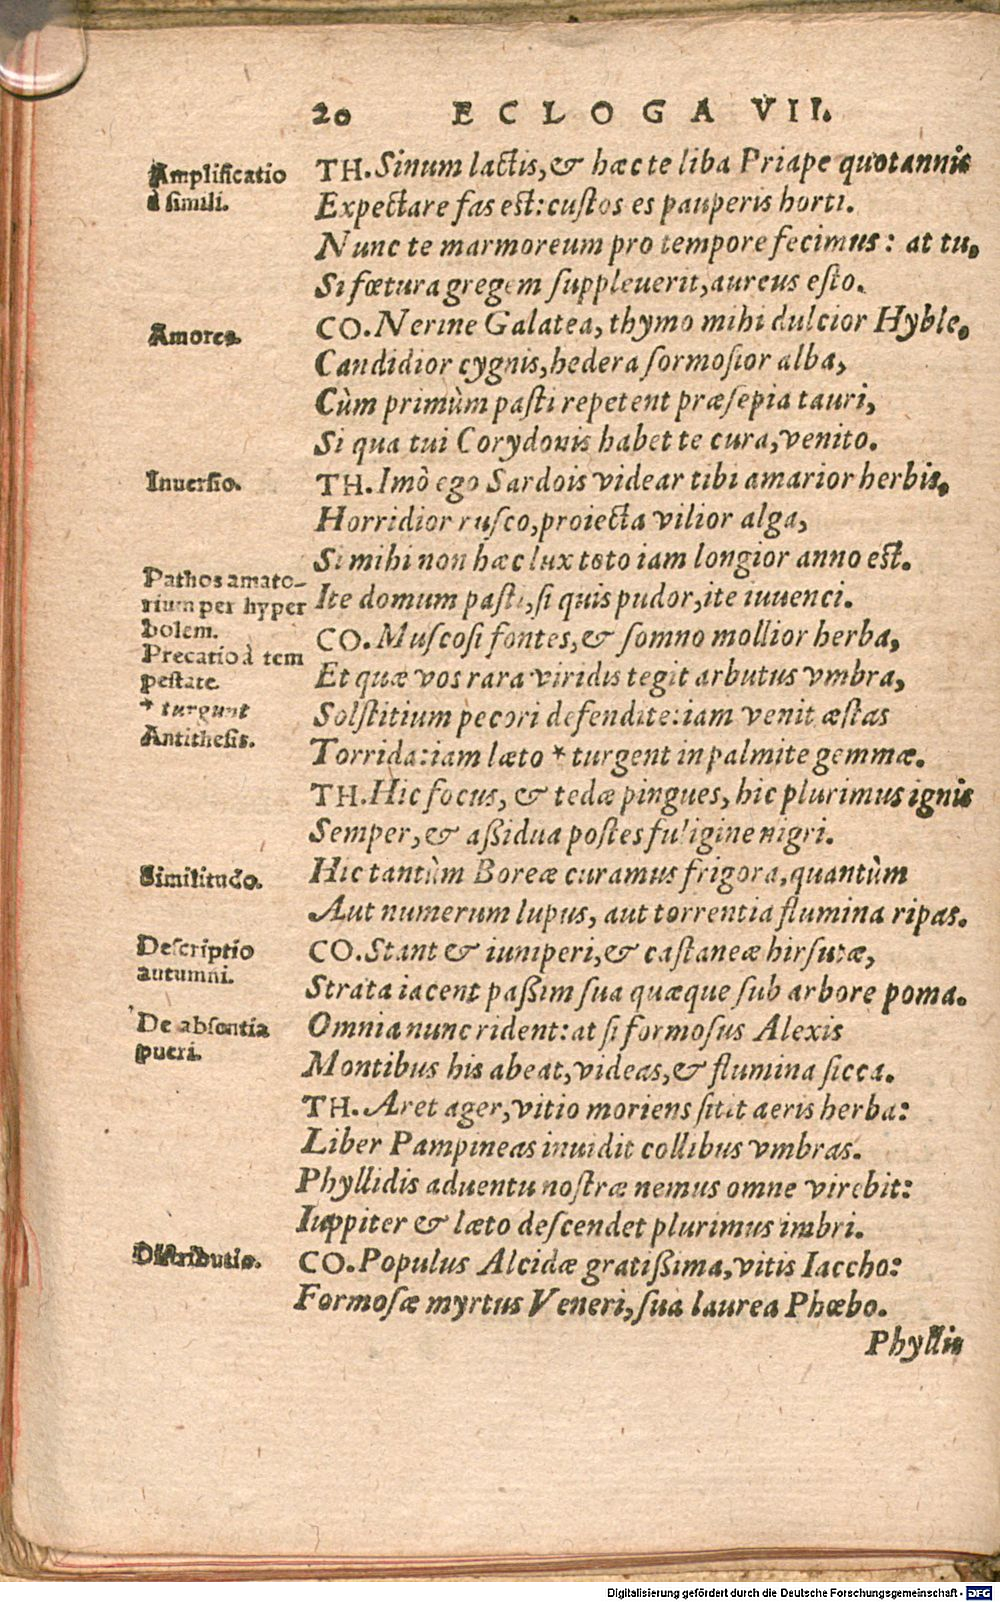 20 ECLOGA VII.
Amplificatio
à simili.
TH. Sinum lactis, & hæc te liba Priape quotannis
Expectare sas est: custos es pauperis horti.
Nunc te marmoreum pro tempore fecimus: at tu,
Si fœtura gregem suppleuerit, aureus esto.
Amores.
CO. Nerine Galatea, thymo mihi dulcior Hyblę,
Candidior cygnis, hedera formosior alba,
Cùm primùm pasti repetent præsepia tauri,
Si qua tui Corydonis habet te cura, venito.
Inuersio.
TH. Imò ego Sardois videar tibi amarior herbis,
Horridior rusco, proiecta vilior alga,
Si mihi non hæc lux toto iam longior anno est.
Pathos amato-
rium per hyper
bolem.
Ite domum pasti, si quis pudor, ite iuuenci.
CO. Muscosi fontes, & somno mollior herba,
Precatio à tem
pestate.
Et quæ vos rara viridis tegit arbutus vmbra,
* turgunt
Solstitium pecori defendite: iam venit æstas
Antithesis.
Torrida: iam læto * turgent in palmite gemmæ.
TH. Hic focus, & tedæ pingues, hic plurimus ignis
Semper, & aßidua postes fuligine nigri.
Similitudo.
Hic tantùm Boreæ curamus frigora, quantùm
Aut numerum lupus, aut torrentia flumina ripas.
Descriptio
autumni.
CO. Stant & iuniperi, & castaneæ hirsutæ,
Strata iacent paßim sua quæque sub arbore poma.
De absentia
pueri.
Omnia nunc rident: at si formosus Alexis
Montibus his abeat, videas, & flumina sicca.
TH. Aret ager, vitio moriens sitit aeris herba:
Liber Pampineas inuidit collibus vmbras.
Phyllidis aduentu nostræ nemus omne virebit:
Iuppiter & læto descendet plurimus imbri.
Distributio.
CO. Populus Alcidæ gratißima, vitis Iaccho:
Formosæ myrtus Veneri, sua laurea Phœbo.
Phyllis
Digitalisierung gefördert durch die Deutsche Forschungsgemeinschaft - DFG